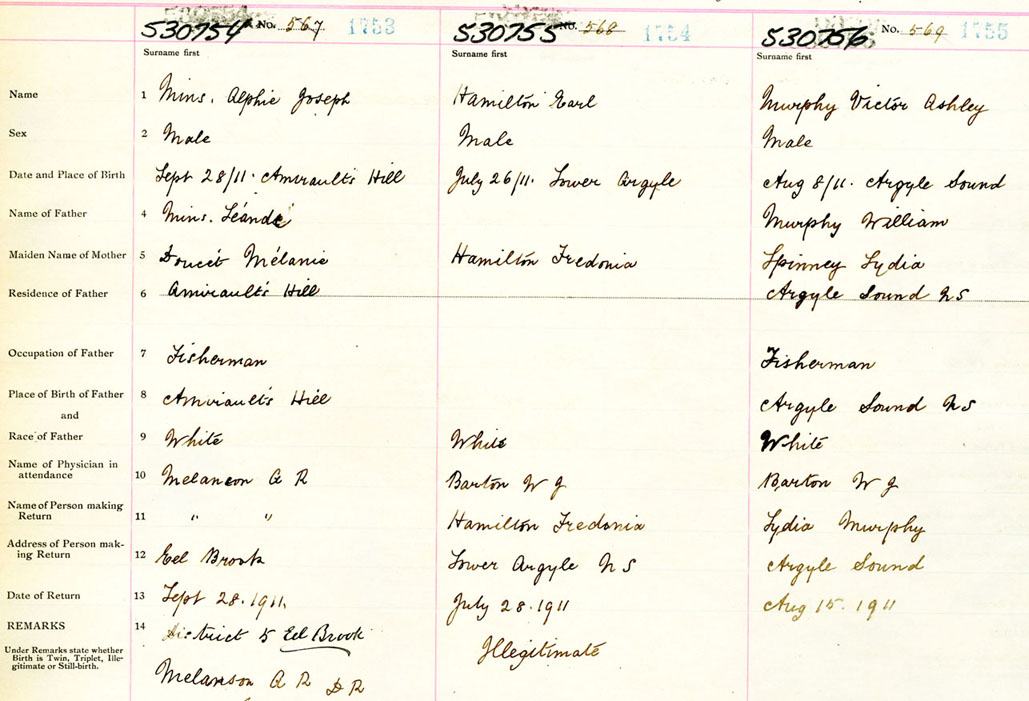 530754 No. 567 1753 530755 No. 568 1754 530756 No. 569 1755
Surname first Surname first Surname first
Name 1 Mins. Alphie Joseph Hamilton Earl Murphy Victor Ashley
Sex 2 Male Male Male
Date and Place of Birth 3 Sept 28/11. Amirault's Hill July 26/11. Lower Argyle Aug 8/11. Argyle Sound
Name of Father 4 Mins. Léandé Murphy William
Maiden Name of Mother 5 Doucét Mélanie Hamilton Fredonia Spinney Lydia
Residence of Father 6 Amirault's Hill Argyle Sound NS
Occupation of Father 7 Fisherman Fisherman
Place of Birth of Father 8 Amirault's Hill Argyle Sound NS
and
Race of Father 9 White White White
Name of Physician in
attendance 10 Melancon A R Barton W J Barton W J
Name of Person making
Return 11 " " Hamilton Fredonia Lydia Murphy
Address of Person mak-
ing Return 12 Eel Brook Lower Argyle N S Argyle Sound
Date of Return 13 Sept 28. 1911. July 28. 1911 Aug 15. 1911
REMARKS 14 District 5 Eel Brook Illegitimate
Under Remarks state whether
Birth is Twin, Triplet, Ille-
gitimate or Still-birth.
Melanson A R D R